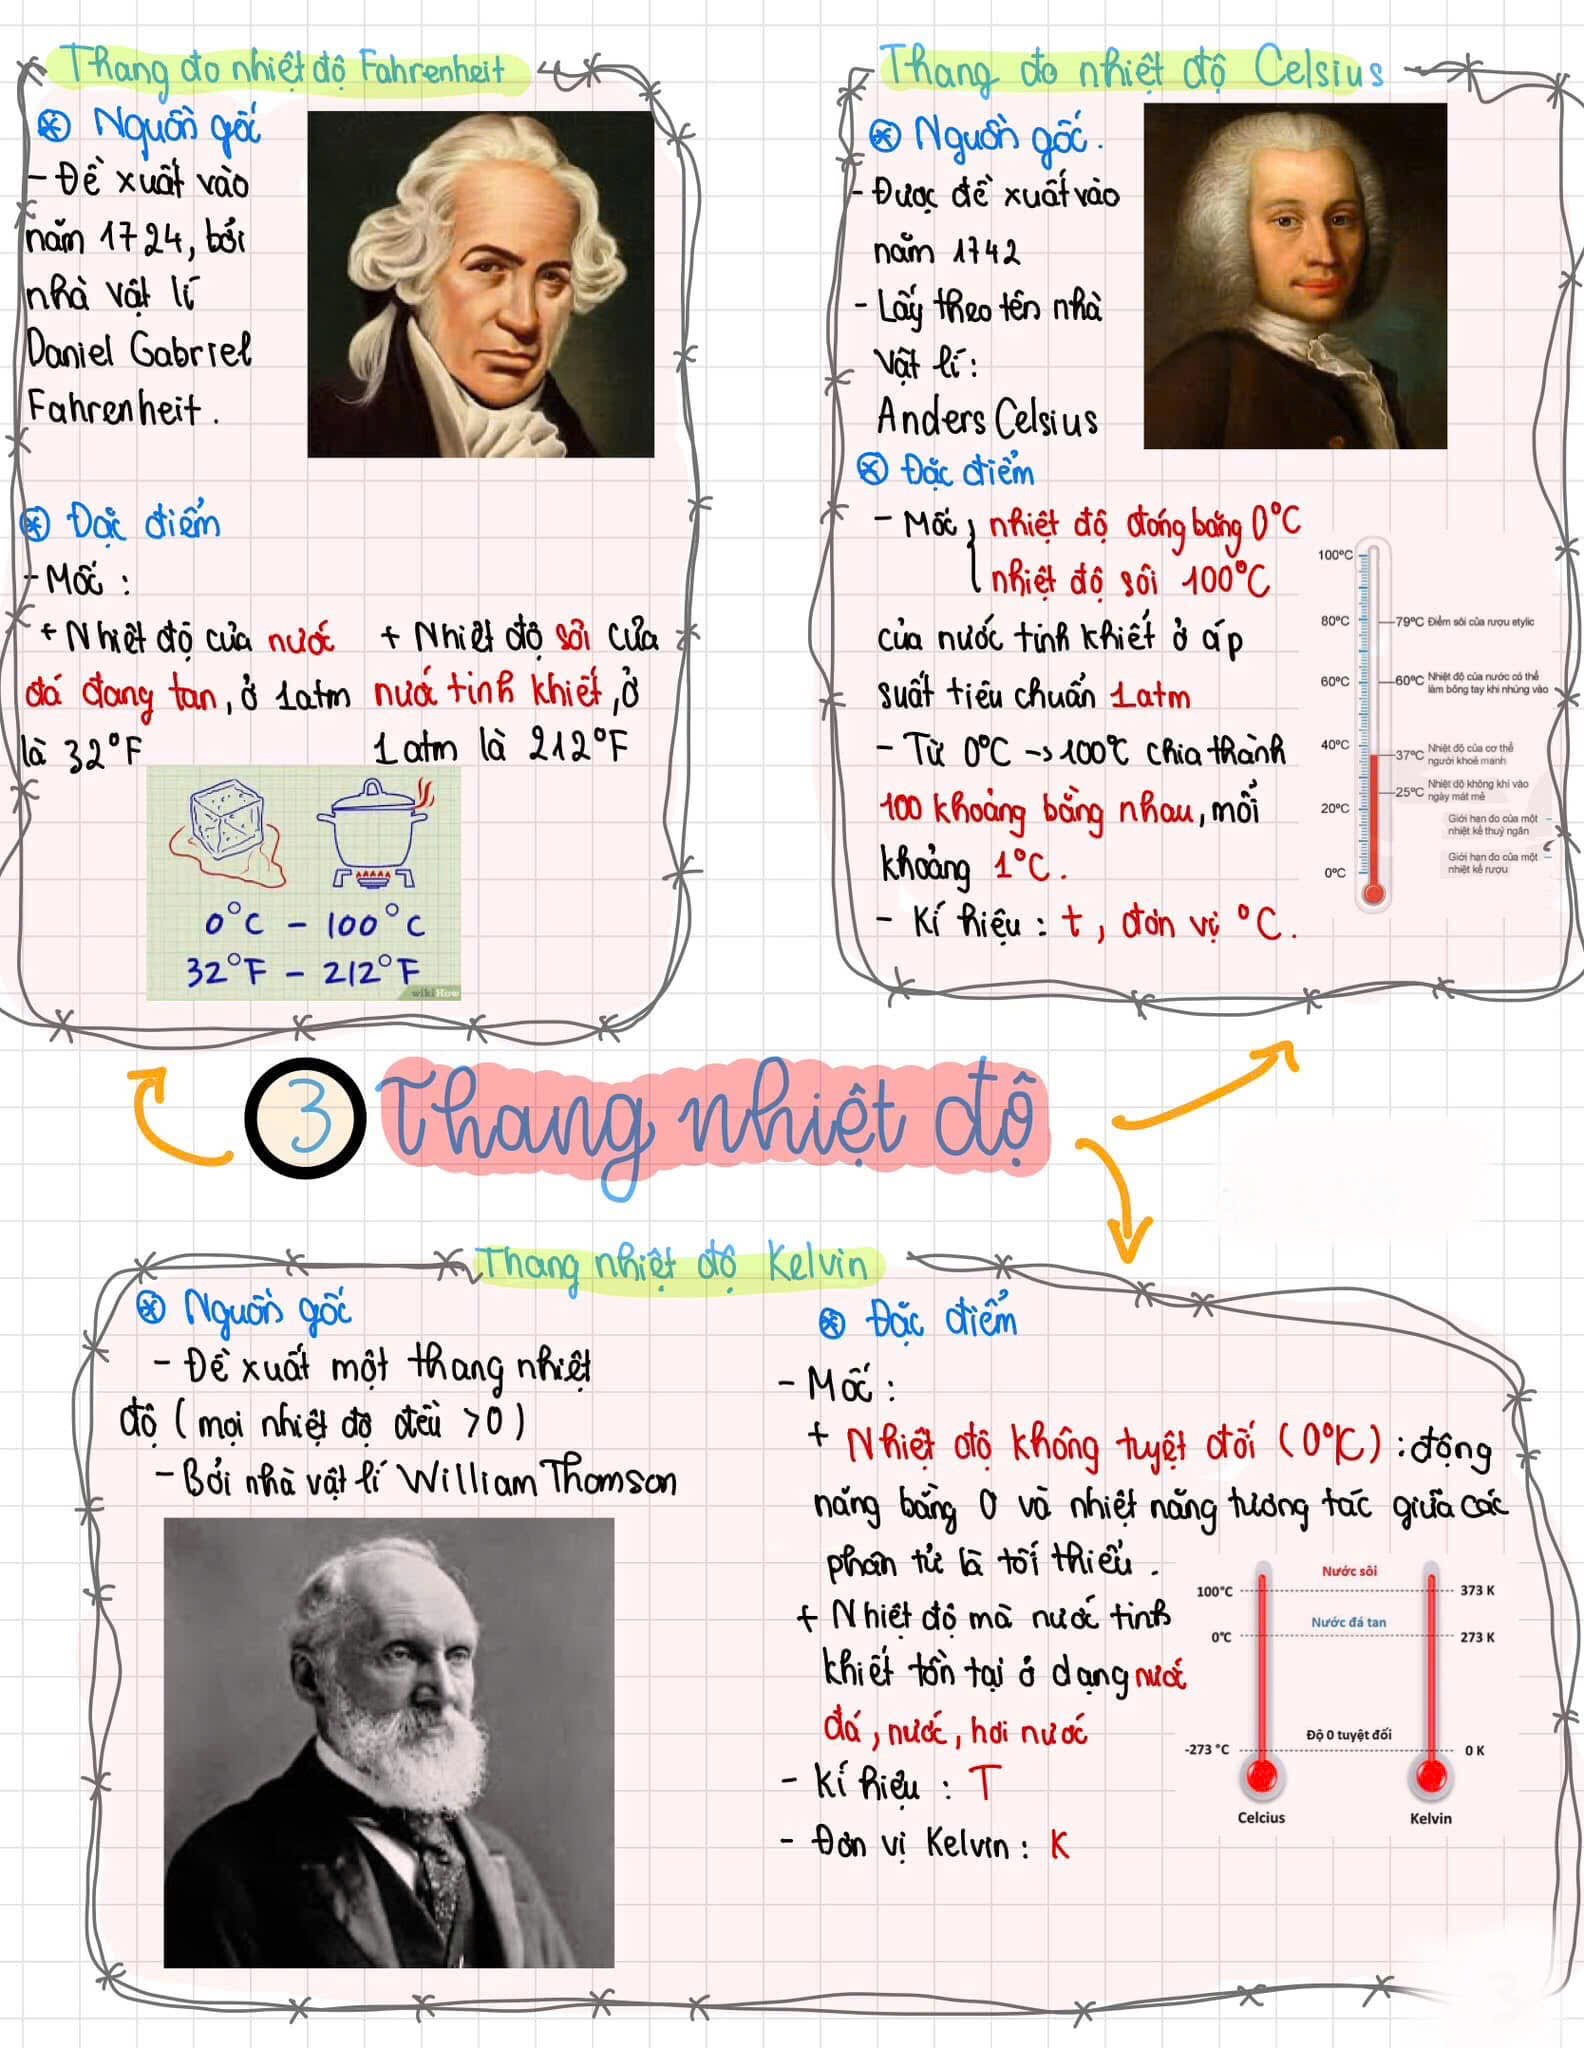 Thang đo nhiệt độ Fahrenheit
Nguồn gốc
- Đề xuất vào
năm 1724, bởi
nhà vật lí
Daniel Gabriel
Fahrenheit.
Đặc điểm
- Mốc :
+ Nhiệt độ của nước
đá đang tan, ở 1atm
là 32°F
+ Nhiệt độ sôi của
nước tinh khiết, ở
1atm là 212°F
0°C - 100°C
32°F - 212°F
wikiHow
Thang đo nhiệt độ Celsius
Nguồn gốc.
- Được đề xuất vào
năm 1742
- Lấy theo tên nhà
vật lí :
Anders Celsius
Đặc điểm
- Mốc { nhiệt độ đóng băng 0°C
nhiệt độ sôi 100°C
của nước tinh khiết ở áp
suất tiêu chuẩn 1atm
- Từ 0°C -> 100°C chia thành
100 khoảng bằng nhau, mỗi
khoảng 1°C.
- Kí hiệu : t, đơn vị °C.
100ºC
80ºC
79ºC Điểm sôi của rượu etylic
60ºC
60ºC Nhiệt độ của nước có thể
làm bỏng tay khi nhúng vào
40ºC
37ºC Nhiệt độ của cơ thể
người khoẻ mạnh
25ºC Nhiệt độ không khí vào
ngày mát mẻ
20ºC
Giới hạn đo của một
nhiệt kế thuỷ ngân
Giới hạn đo của một
nhiệt kế rượu
0ºC
3 Thang nhiệt độ
Thang nhiệt độ Kelvin
Nguồn gốc
- Đề xuất một thang nhiệt
độ (mọi nhiệt độ đều >0)
- Bởi nhà vật lí William Thomson
Đặc điểm
- Mốc :
+ Nhiệt độ không tuyệt đối (0°K) : động
năng bằng 0 và nhiệt năng tương tác giữa các
phân tử là tối thiểu.
+ Nhiệt độ mà nước tinh
khiết tồn tại ở dạng nước
đá, nước, hơi nước
- Kí hiệu : T
- Đơn vị Kelvin : K
Nước sôi
100°C
373 K
Nước đá tan
0°C
273 K
Độ 0 tuyệt đối
-273 °C
0 K
Celcius
Kelvin